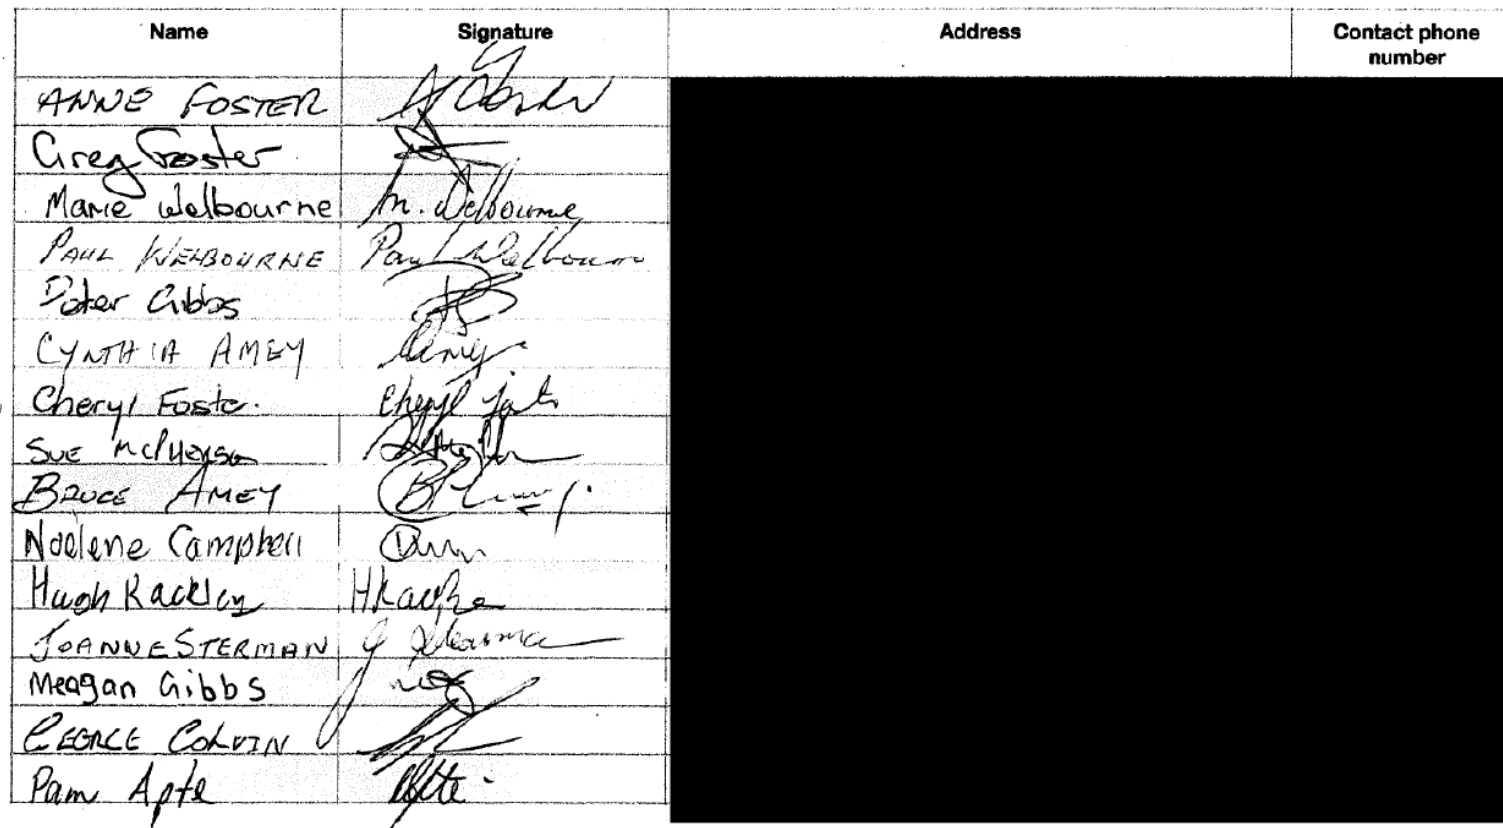 Name Signature Address Contact phone number
ANNE FOSTER
Greg Foster
Marie Welbourne M. Welbourne
PAUL WELBOURNE Paul Welbourn
Peter Gibbs
CYNTHIA AMEY Amey
Cheryl Foste. Cheryl
SUE McPHERSON
BRUCE AMEY
Noelene Campbell
Hugh Rackley
JOANNE STERMAN
Meagan Gibbs
GEORGE COLVIN
Pam Apte